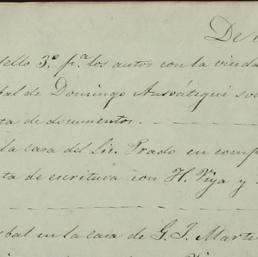 De
ello 3.º p.ª los autos con la viuda
bal de Domingo Ansoátegui so
ta de documentos.
la casa del Lic. Prado en comp
ta de escritura con H. Viya y
bal en la casa de G. J. Marte